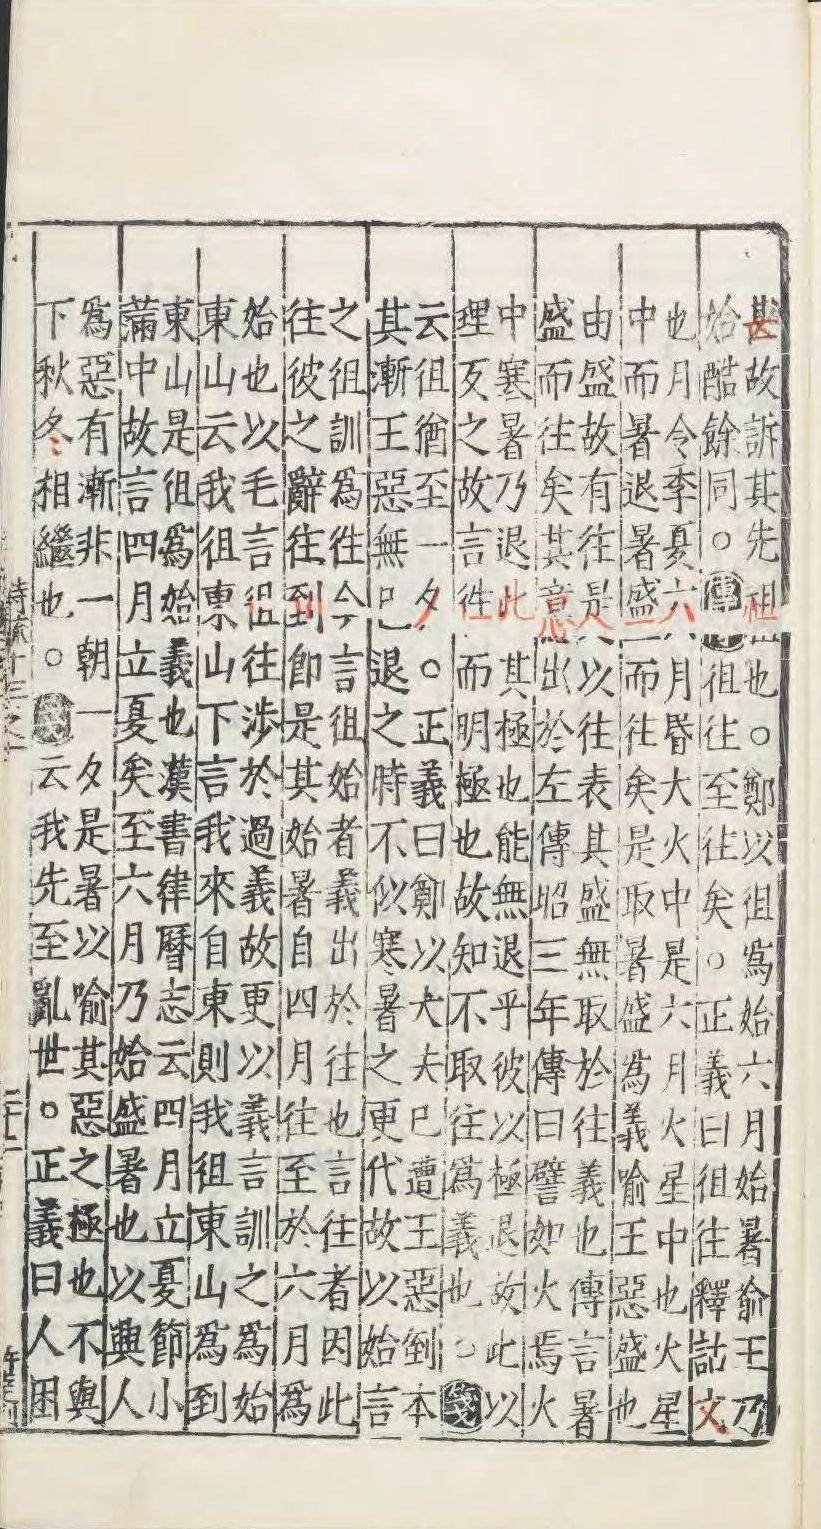 甚故訴其先祖也○鄭以徂爲始六月始暑喻王乃
始酷餘同○傳徂往至往矣○正義曰徂往釋詁文
也月令季夏六月昏大火中是六月火星中也火星
中而暑退暑盛而往矣是取暑盛爲義喻王惡盛也
由盛故有往是以往表其盛無取於往義也傳言暑
盛而往矣其意出於左傳昭三年傳曰譬如火焉火
中寒暑乃退此其極也能無退乎彼以極退故此以
理反之故言往而明極也故知不取往爲義也○箋
云徂猶至一夕○正義曰鄭以大夫已遭王惡倒本
其漸王惡無已退之時不似寒暑之更代故以始言
之徂訓爲往今言徂始者義出於往也言往者因此
往彼之辭往到即是其始暑自四月往至於六月爲
始也以毛言徂往涉於過義故更以義言訓之爲始
東山云我徂東山下言我來自東則我徂東山爲到
東山是徂爲始義也漢書律曆志云四月立夏節小
滿中故言四月立夏矣至六月乃始盛暑也以興人
爲惡有漸非一朝一夕是暑以喻其惡之極也不與
下秋冬相繼也○箋云我先至亂世○正義曰人困